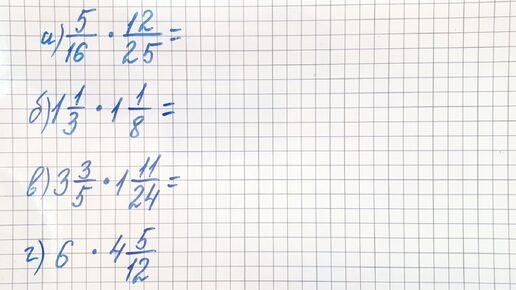 а) 5/16 · 12/25 =
б) 1 1/3 · 1 1/8 =
в) 3 3/5 · 1 11/24 =
г) 6 · 4 5/12